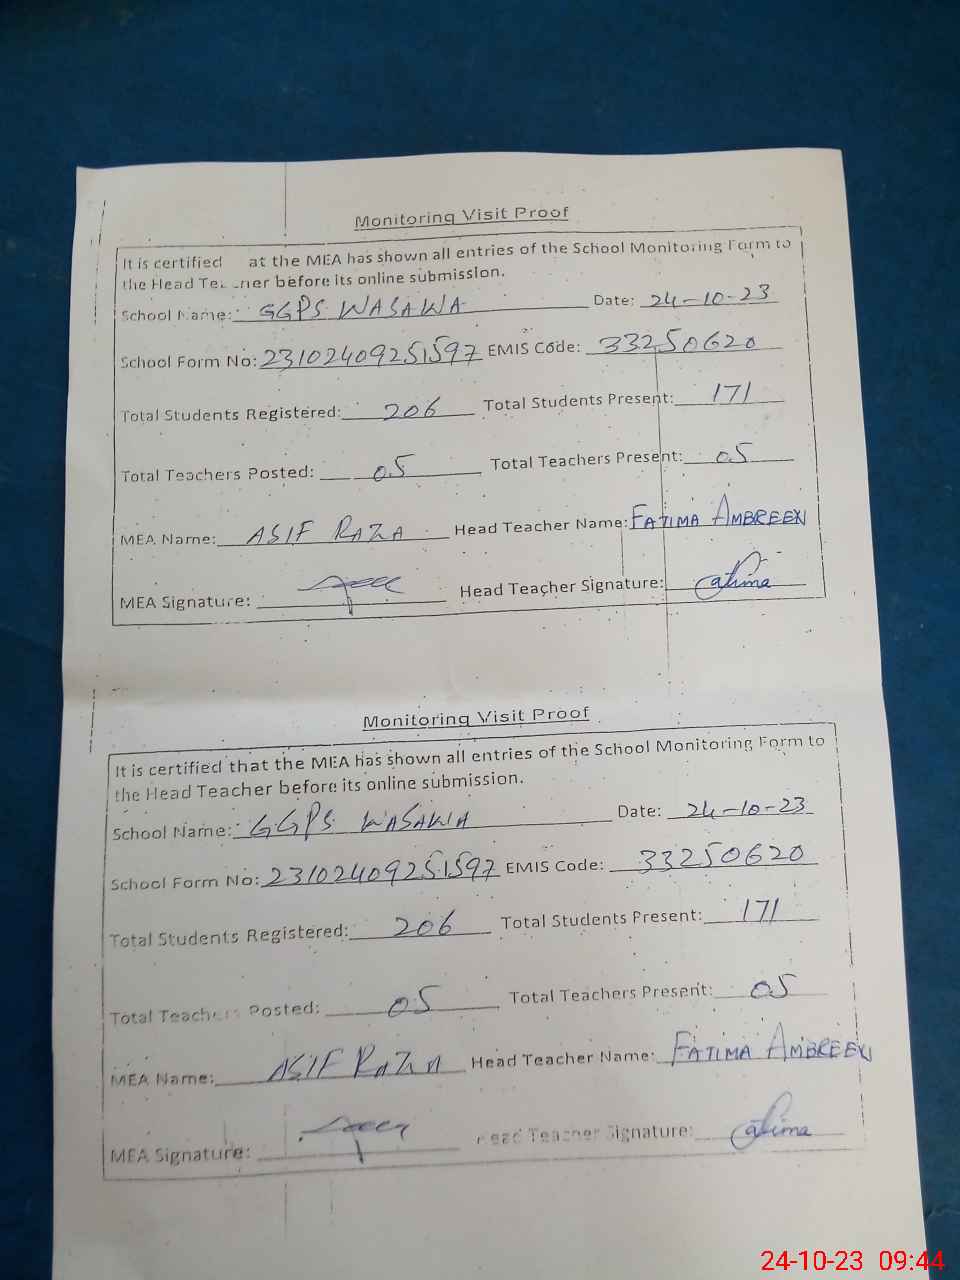 Monitoring Visit Proof
It is certified at the MEA has shown all entries of the School Monitoring Form to
the Head Teacher before its online submission.
School Name: GGPS WASAWA Date: 24-10-23
School Form No: 23102409251597 EMIS Code: 33250620
Total Students Registered: 206 Total Students Present: 171
Total Teachers Posted: 05 Total Teachers Present: 05
MEA Name: ASIF RAZA Head Teacher Name: FATIMA AMBREEN
MEA Signature: Head Teacher Signature: Fatima
Monitoring Visit Proof
It is certified that the MEA has shown all entries of the School Monitoring Form to
the Head Teacher before its online submission.
School Name: GGPS WASAWA Date: 24-10-23
School Form No: 23102409251597 EMIS Code: 33250620
Total Students Registered: 206 Total Students Present: 171
Total Teachers Posted: 05 Total Teachers Present: 05
MEA Name: ASIF RAZA Head Teacher Name: FATIMA AMBREEN
MEA Signature: Head Teacher Signature: Fatima
24-10-23 09:44